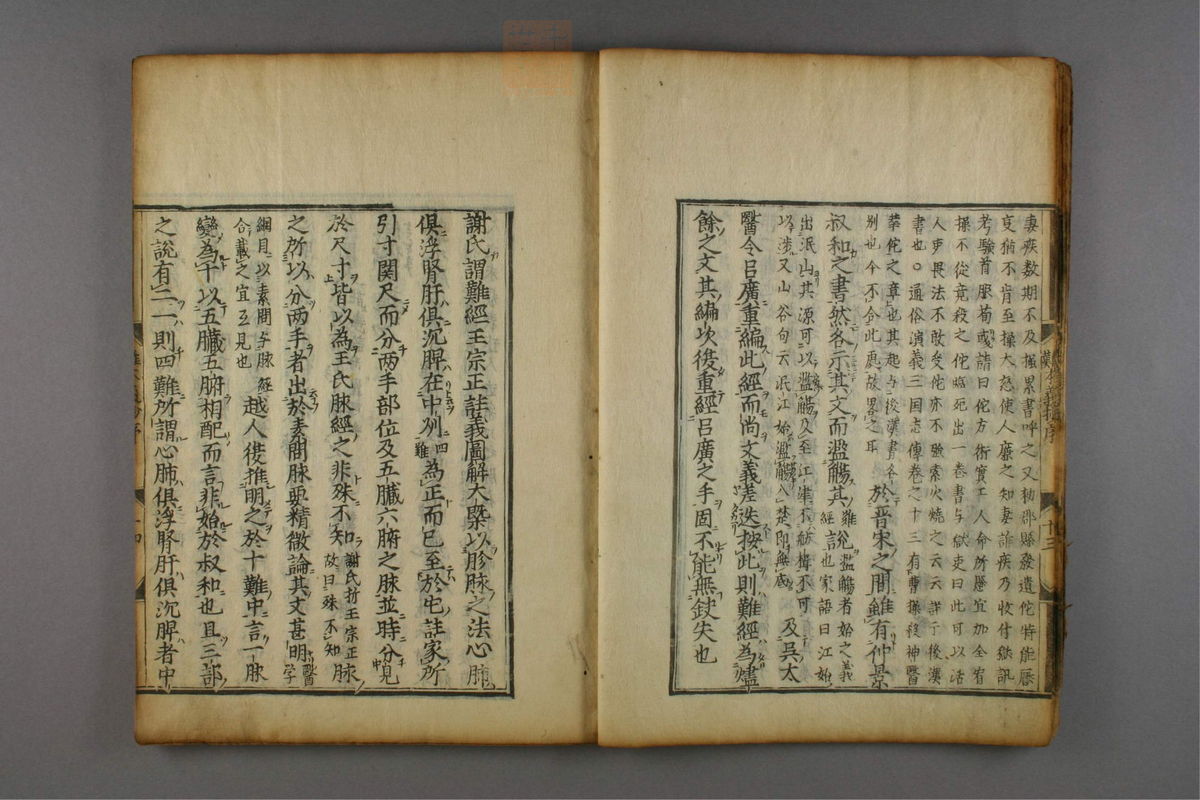 妻疾数期不及操累書呼之又勅郡縣發遣佗恃能厭
𠫵猶不肯至操大怒使人廉之知妻詐疾乃收付獄訊
考驗首服荀彧請曰佗方術實工人命所懸宜加全宥
操不從竟殺之佗臨死出一卷書与獄吏曰此可以活
人吏畏法不敢受佗亦不強索火燒之云云詳于後漢
書也○通俗演義三国志傳卷之十三有曹操殺神醫
華佗之章也其起与後漢書各
別也今不合此應故畧之耳
於晋宋之間雖有仲景
叔和之書然各示其文而濫觴其
難説濫觴者始之義
經也家語曰江始
出泯山其源可以濫觴及至江津不舫楫不可
以渉又山谷句云泯江始濫觴入楚即無底
及吳太
醫令呂廣重編此經而尚文義差迭按此則難經為燼
餘之文其編次復重經呂廣之手固不能無鈌失也
謝氏謂難經王宗正註義圖解大槩以胗脉之法心肺
俱浮腎肝俱沉脾在中州
四
難
為正而已至於它註家所
引寸関尺而分两手部位及五臓六腑之脉並時分見
於尺寸皆以為王氏脉經之非殊不知
謝氏於王宗正
故曰殊不知
脉
之所以分两手者出於素問脉要精微論其文甚明
醫
學
綱目以素問与脉經
合載之宜互見也
越人復推明之於十難中言一脉
變為十以五臓五腑相配而言非始於叔和也且三部
之説有二一則四難所謂心肺俱浮腎肝俱沉脾者中